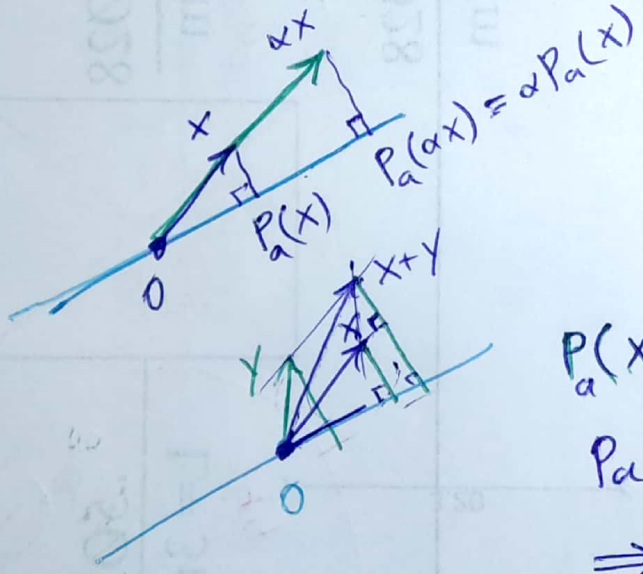 αx
x
P_a(αx) = αP_a(x)
P_a(x)
0
x+y
x
y
P_a(x
P_a
0
⟹